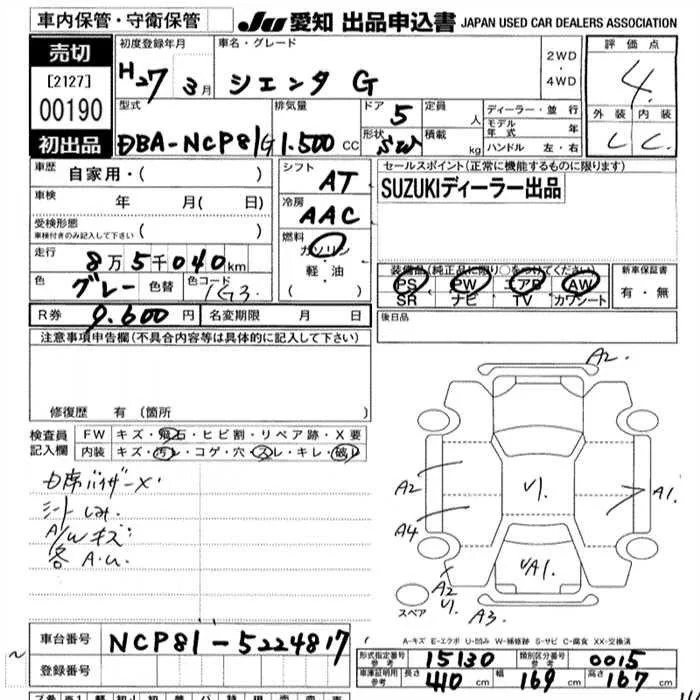 車内保管・守衛保管
JU 愛知 出品申込書 JAPAN USED CAR DEALERS ASSOCIATION
売切
[2127]
00190
初出品
初度登録年月
H27 3月
車名・グレード
シエンタ G
2WD
・
4WD
評価点
4.
外装 内装
C C
型式
DBA-NCP81G
排気量
1.500 CC
ドア
5
形状
SW
定員
人
積載
kg
ディーラー・並行
モデル年式 年
ハンドル 左・右
車歴 自家用・( )
車検 年 月( 日)
受検形態
車検付きのみ記入して下さい ( )
走行
8万5千040km
色 グレー 色替 色コード 1G3
R券 9.600円 名変期限 月 日
シフト
AT
冷房
AAC
燃料
ガソリン
軽・油
( )
セールスポイント(正常に機能するものに限ります)
SUZUKIディーラー出品
装備品(純正品に限り○をつけてください)
PS PW エアB AW
SR ナビ TV カワシート
新車保証書
有・無
後日品
注意事項申告欄(不具合内容等は具体的に記入して下さい)
修復歴 有(箇所
検査員記入欄
FW キズ・飛石・ヒビ割・リペア跡・X要
内装 キズ・汚レ・コゲ・穴・スレ・キレ・破レ
バイザーX
シートしみ
A/Wキズ
各A.U.
A2.
A2
A4
V1.
A1.
VA1.
X
A2
V1.
A3.
スペア
A-キズ E-エクボ U-凹み W-補修跡 S-サビ C-腐食 XX-交換済
車台番号 NCP81-5224817
登録番号
形式指定番号 参考 15130 類別区分番号 参考 0015
車庫証明用 参考 長さ 410 cm 幅 169 cm 高さ 167 cm